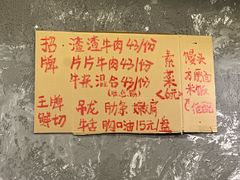 招牌
渣渣牛肉43/份
片片牛肉43/份
牛杂混合43/份
王牌鲜切
吊龙 肋条 嫩肩
牛舌 胸口油15元/盘
素菜
<6元>
馒头
方便面
米饭